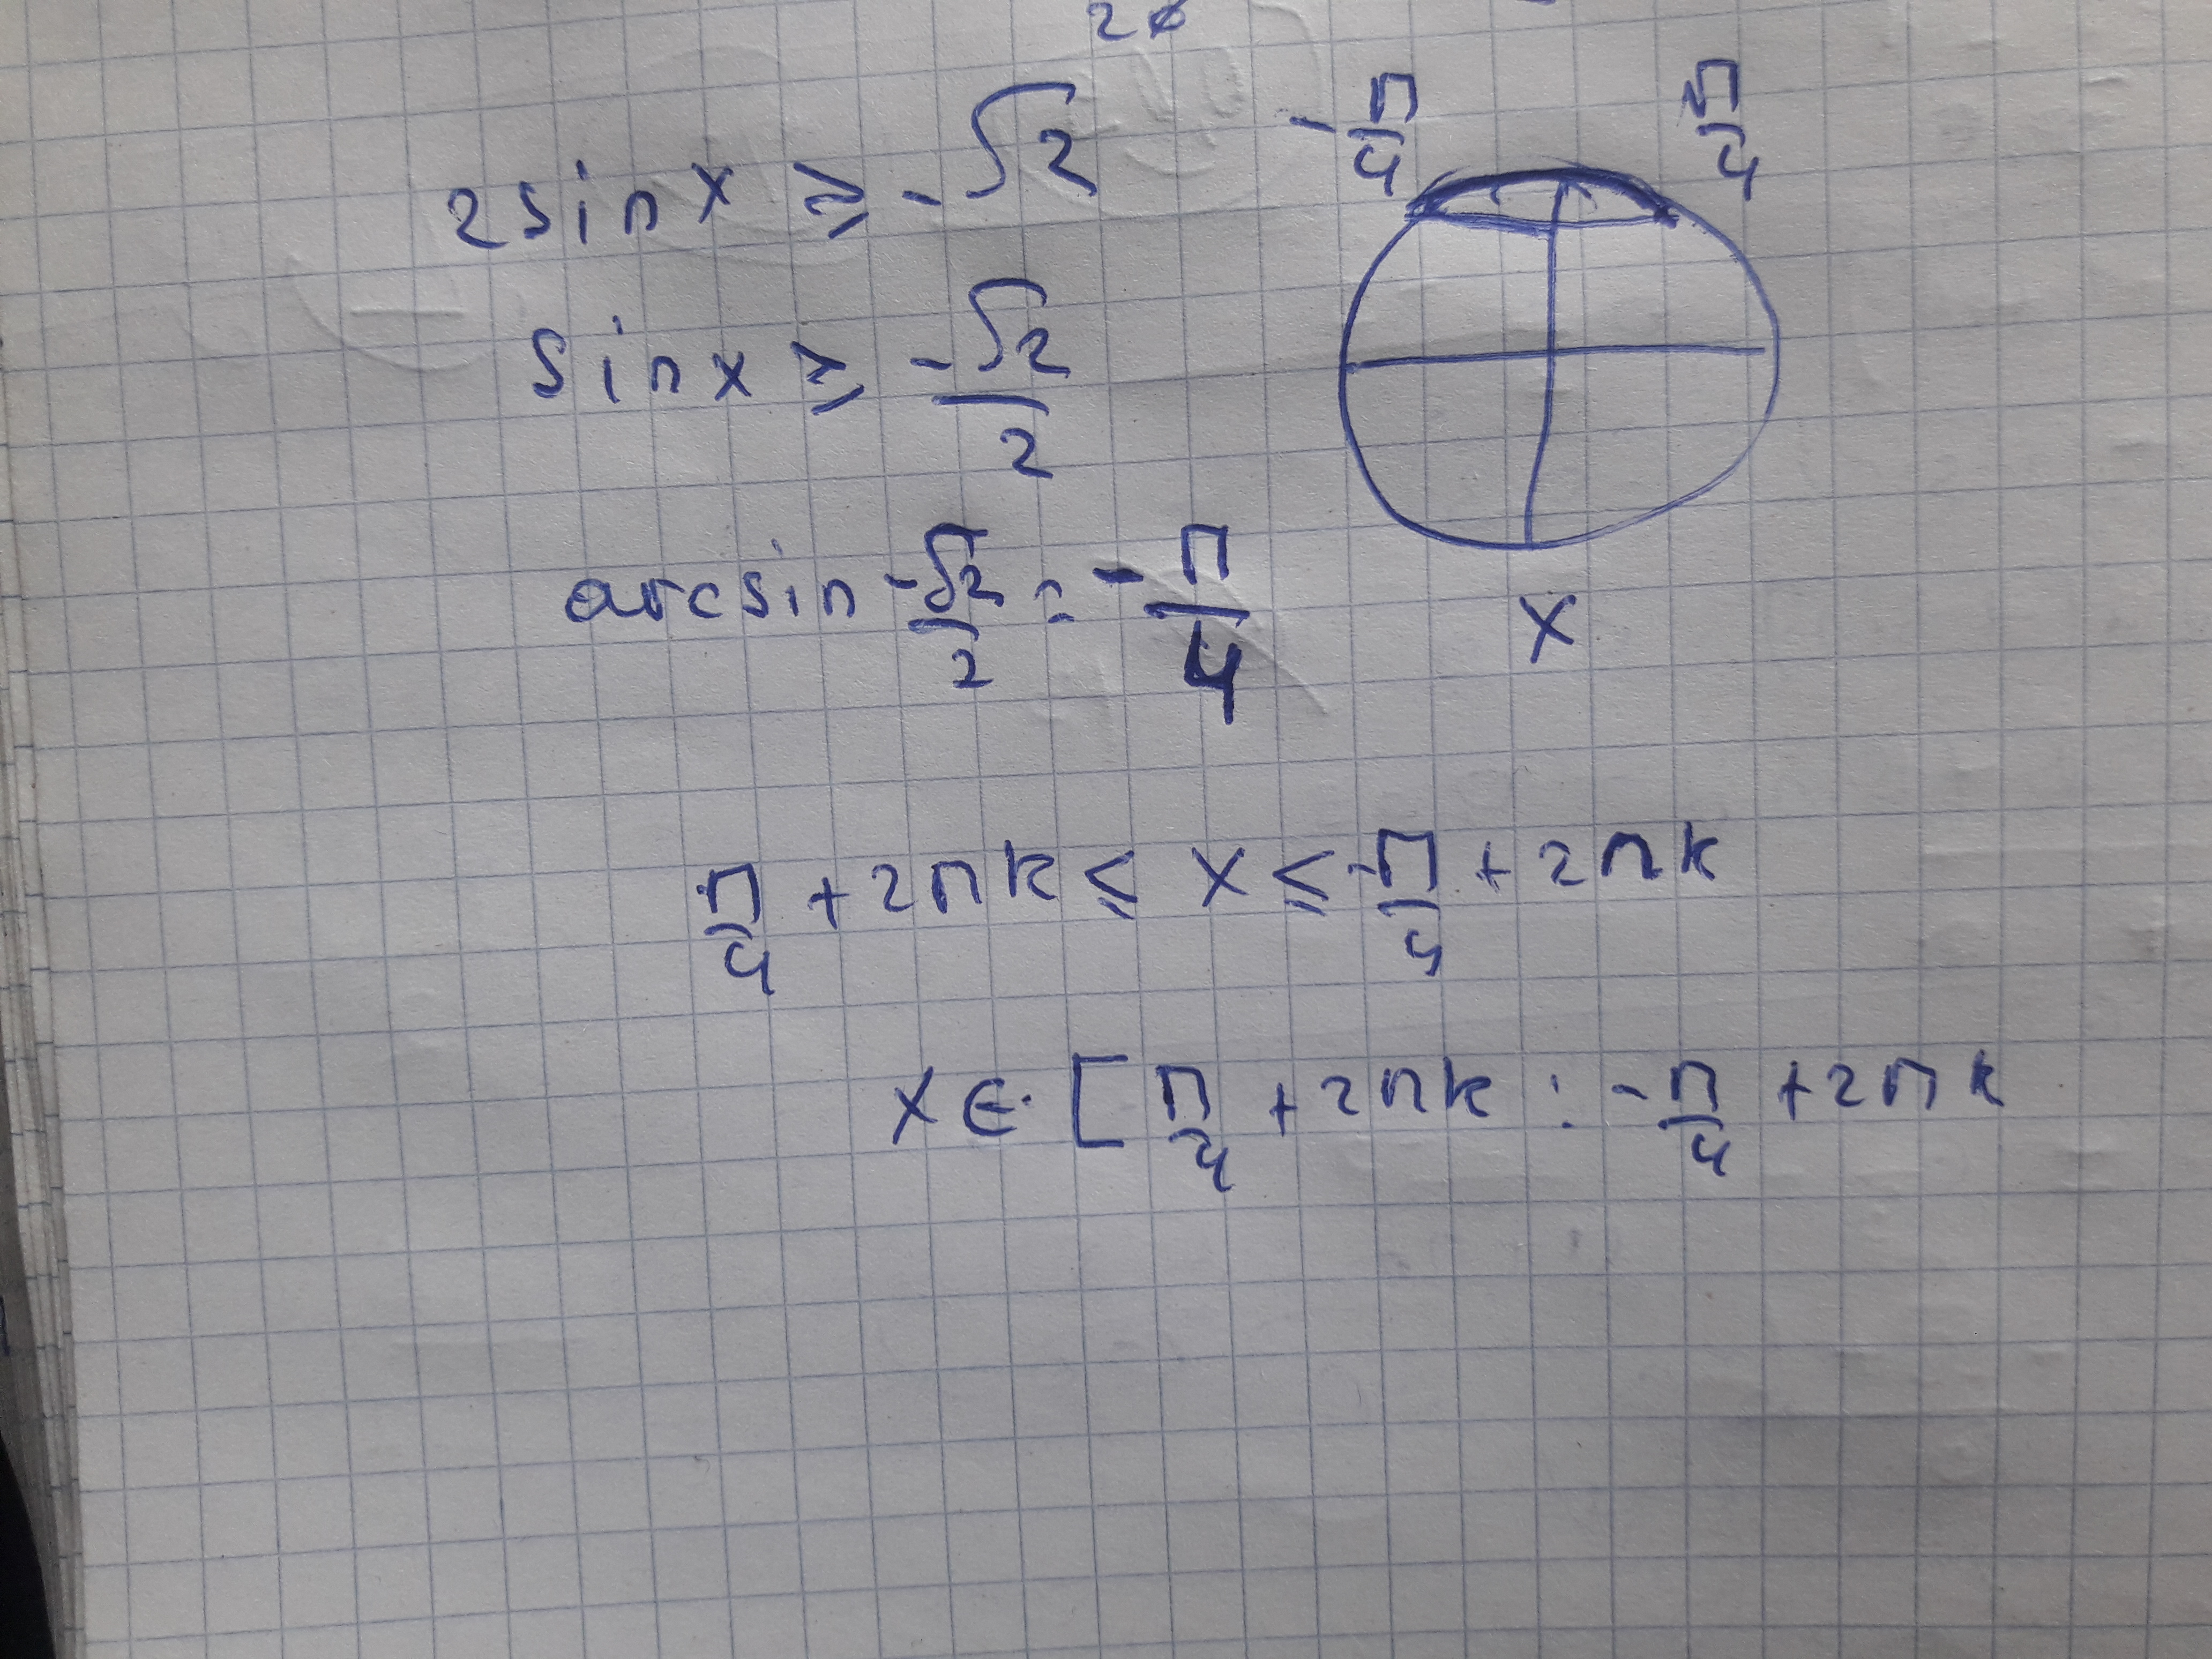 20
2sinx ≥ -√2
-π/4
π/4
sinx ≥ -√2/2
arcsin -√2/2 = -π/4
x
π/4 + 2πk ≤ x ≤ -π/4 + 2πk
x ∈ [π/4 + 2πk : -π/4 + 2πk